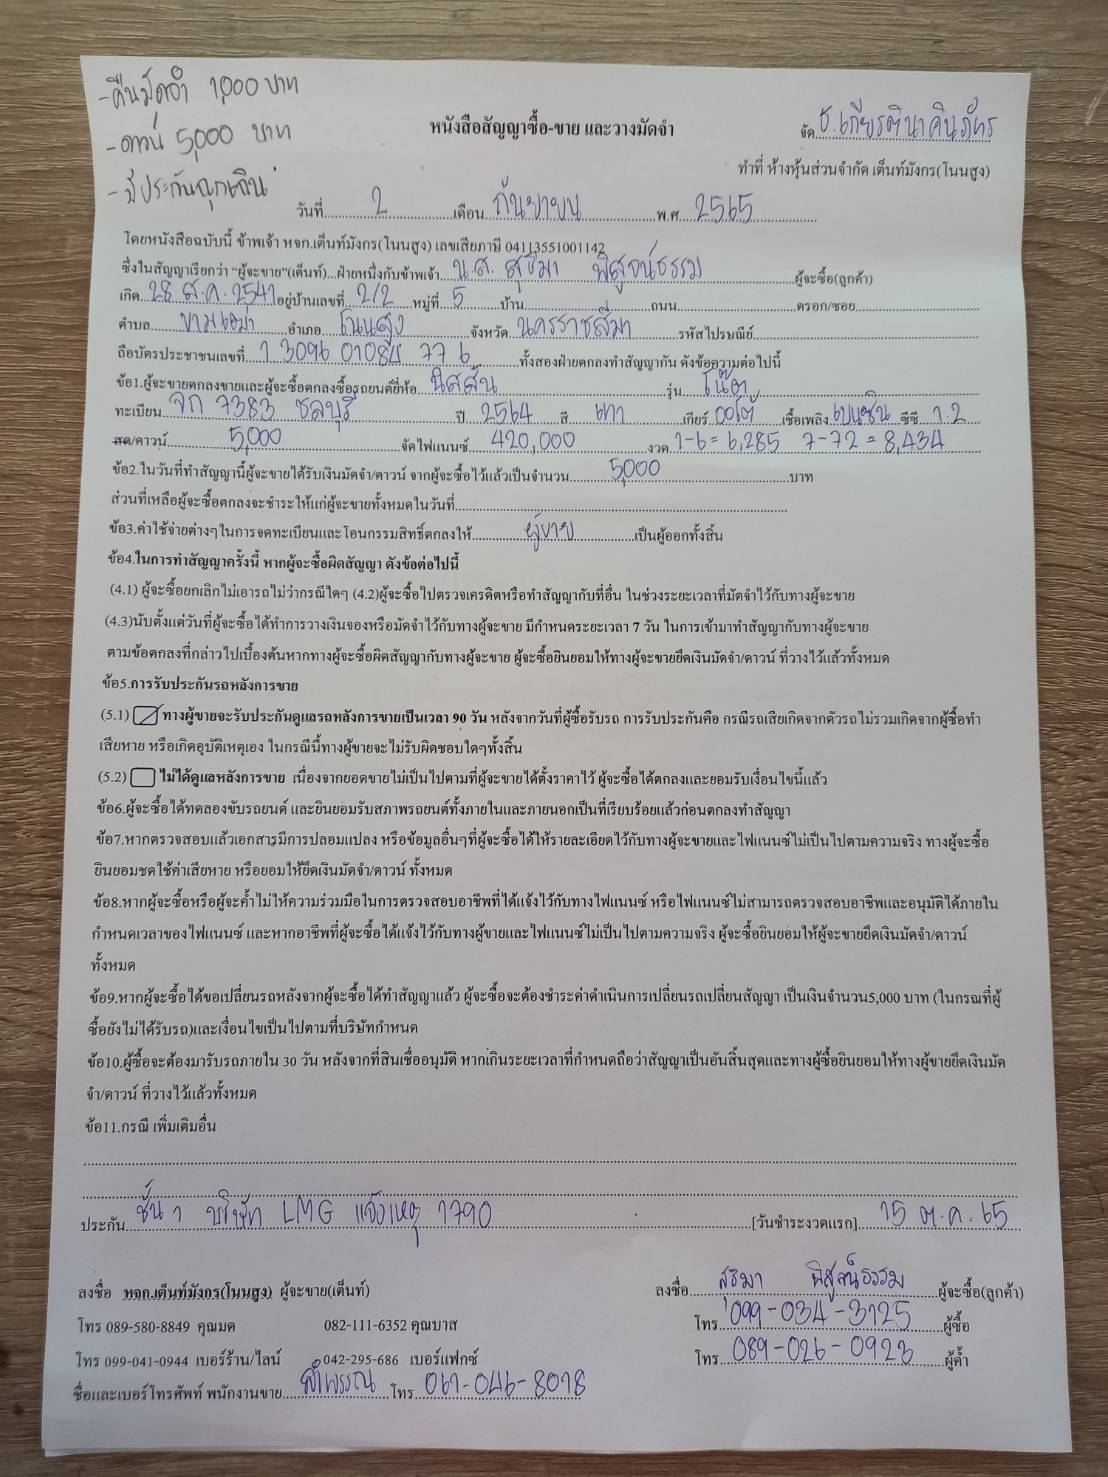 -คืนมัดจำ 1,000 บาท
-ดาวน์ 5,000 บาท
-มีประกันฉุกเฉิน
หนังสือสัญญาซื้อ-ขาย และวางมัดจำ
จัด ธ.เกียรตินาคินภัทร
ทำที่ ห้างหุ้นส่วนจำกัด เต็นท์มังกร(โนนสูง)
วันที่ 2 เดือน กันยายน พ.ศ. 2565
โดยหนังสือฉบับนี้ ข้าพเจ้า หจก.เต็นท์มังกร(โนนสูง) เลขเสียภาษี 04113551001142
ซึ่งในสัญญาเรียกว่า "ผู้จะขาย"(เต็นท์)...ฝ่ายหนึ่งกับข้าพเจ้า น.ส. สุธิมา พิสูจน์ธรรม ผู้จะซื้อ(ลูกค้า)
เกิด 28 ส.ค. 2541 อยู่บ้านเลขที่ 2/2 หมู่ที่ 5 บ้าน ถนน ตรอก/ซอย
ตำบล ขามเฒ่า อำเภอ โนนสูง จังหวัด นครราชสีมา รหัสไปรษณีย์
ถือบัตรประชาชนเลขที่ 1 3096 01084 77 6 ทั้งสองฝ่ายตกลงทำสัญญากัน ดังข้อความต่อไปนี้
ข้อ1.ผู้จะขายตกลงขายและผู้จะซื้อตกลงซื้อรถยนต์ยี่ห้อ นิสสัน รุ่น โน๊ต
ทะเบียน จก 7383 ชลบุรี ปี 2564 สี เทา เกียร์ ออโต้ เชื้อเพลิง เบนซิน ซีซี 1.2
สด/ดาวน์ 5,000 จัดไฟแนนซ์ 420,000 งวด 1-6 = 6,285 7-72 = 8,434
ข้อ2.ในวันที่ทำสัญญานี้ผู้จะขายได้รับเงินมัดจำ/ดาวน์ จากผู้จะซื้อไว้แล้วเป็นจำนวน 5,000 บาท
ส่วนที่เหลือผู้จะซื้อตกลงจะชำระให้แก่ผู้จะขายทั้งหมดในวันที่
ข้อ3.ค่าใช้จ่ายต่างๆในการจดทะเบียนและโอนกรรมสิทธิ์ตกลงให้ ผู้ขาย เป็นผู้ออกทั้งสิ้น
ข้อ4.ในการทำสัญญาครั้งนี้ หากผู้จะซื้อผิดสัญญา ดังข้อต่อไปนี้
(4.1) ผู้จะซื้อยกเลิกไม่เอารถไม่ว่ากรณีใดๆ (4.2)ผู้จะซื้อไปตรวจเครดิตหรือทำสัญญากับที่อื่น ในช่วงระยะเวลาที่มัดจำไว้กับทางผู้จะขาย
(4.3)นับตั้งแต่วันที่ผู้จะซื้อได้ทำการวางเงินจองหรือมัดจำไว้กับทางผู้จะขาย มีกำหนดระยะเวลา 7 วัน ในการเข้ามาทำสัญญากับทางผู้จะขาย
ตามข้อตกลงที่กล่าวไปเบื้องต้นหากทางผู้จะซื้อผิดสัญญากับทางผู้จะขาย ผู้จะซื้อยินยอมให้ทางผู้จะขายยึดเงินมัดจำ/ดาวน์ ที่วางไว้แล้วทั้งหมด
ข้อ5.การรับประกันรถหลังการขาย
(5.1) ทางผู้ขายจะรับประกันดูแลรถหลังการขายเป็นเวลา 90 วัน หลังจากวันที่ผู้ซื้อรับรถ การรับประกันคือ กรณีรถเสียเกิดจากตัวรถไม่รวมเกิดจากผู้ซื้อทำ
เสียหาย หรือเกิดอุบัติเหตุเอง ในกรณีนี้ทางผู้ขายจะไม่รับผิดชอบใดๆทั้งสิ้น
(5.2) ไม่ได้ดูแลหลังการขาย เนื่องจากยอดขายไม่เป็นไปตามที่ผู้จะขายได้ตั้งราคาไว้ ผู้จะซื้อได้ตกลงและยอมรับเงื่อนไขนี้แล้ว
ข้อ6.ผู้จะซื้อได้ทดลองขับรถยนต์ และยินยอมรับสภาพรถยนต์ทั้งภายในและภายนอกเป็นที่เรียบร้อยแล้วก่อนตกลงทำสัญญา
ข้อ7.หากตรวจสอบแล้วเอกสารมีการปลอมแปลง หรือข้อมูลอื่นๆที่ผู้จะซื้อได้ให้รายละเอียดไว้กับทางผู้จะขายและไฟแนนซ์ไม่เป็นไปตามความจริง ทางผู้จะซื้อ
ยินยอมชดใช้ค่าเสียหาย หรือยอมให้ยึดเงินมัดจำ/ดาวน์ ทั้งหมด
ข้อ8.หากผู้จะซื้อหรือผู้จะค้ำไม่ให้ความร่วมมือในการตรวจสอบอาชีพที่ได้แจ้งไว้กับทางไฟแนนซ์ หรือไฟแนนซ์ไม่สามารถตรวจสอบอาชีพและอนุมัติได้ภายใน
กำหนดเวลาของไฟแนนซ์ และหากอาชีพที่ผู้จะซื้อได้แจ้งไว้กับทางผู้ขายและไฟแนนซ์ไม่เป็นไปตามความจริง ผู้จะซื้อยินยอมให้ผู้จะขายยึดเงินมัดจำ/ดาวน์
ทั้งหมด
ข้อ9.หากผู้จะซื้อได้ขอเปลี่ยนรถหลังจากผู้จะซื้อได้ทำสัญญาแล้ว ผู้จะซื้อจะต้องชำระค่าดำเนินการเปลี่ยนรถเปลี่ยนสัญญา เป็นเงินจำนวน5,000 บาท (ในกรณที่ผู้
ซื้อยังไม่ได้รับรถ)และเงื่อนไขเป็นไปตามที่บริษัทกำหนด
ข้อ10.ผู้ซื้อจะต้องมารับรถภายใน 30 วัน หลังจากที่สินเชื่ออนุมัติ หากเกินระยะเวลาที่กำหนดถือว่าสัญญาเป็นอันสิ้นสุดและทางผู้ซื้อยินยอมให้ทางผู้ขายยึดเงินมัด
จำ/ดาวน์ ที่วางไว้แล้วทั้งหมด
ข้อ11.กรณี เพิ่มเติมอื่น
ประกัน ชั้น 1 บริษัท LMG แจ้งเหตุ 1790 [วันชำระงวดแรก] 15 ต.ค. 65
ลงชื่อ หจก.เต็นท์มังกร(โนนสูง) ผู้จะขาย(เต็นท์) ลงชื่อ สุธิมา พิสูจน์ธรรม ผู้จะซื้อ(ลูกค้า)
โทร 089-580-8849 คุณมด 082-111-6352 คุณบาส โทร 099-034-3125 ผู้ซื้อ
โทร 099-041-0944 เบอร์ร้าน/ไลน์ 042-295-686 เบอร์แฟกซ์ โทร 089-026-0923 ผู้ค้ำ
ชื่อและเบอร์โทรศัพท์ พนักงานขาย ลำพรรณ โทร 061-046-8018